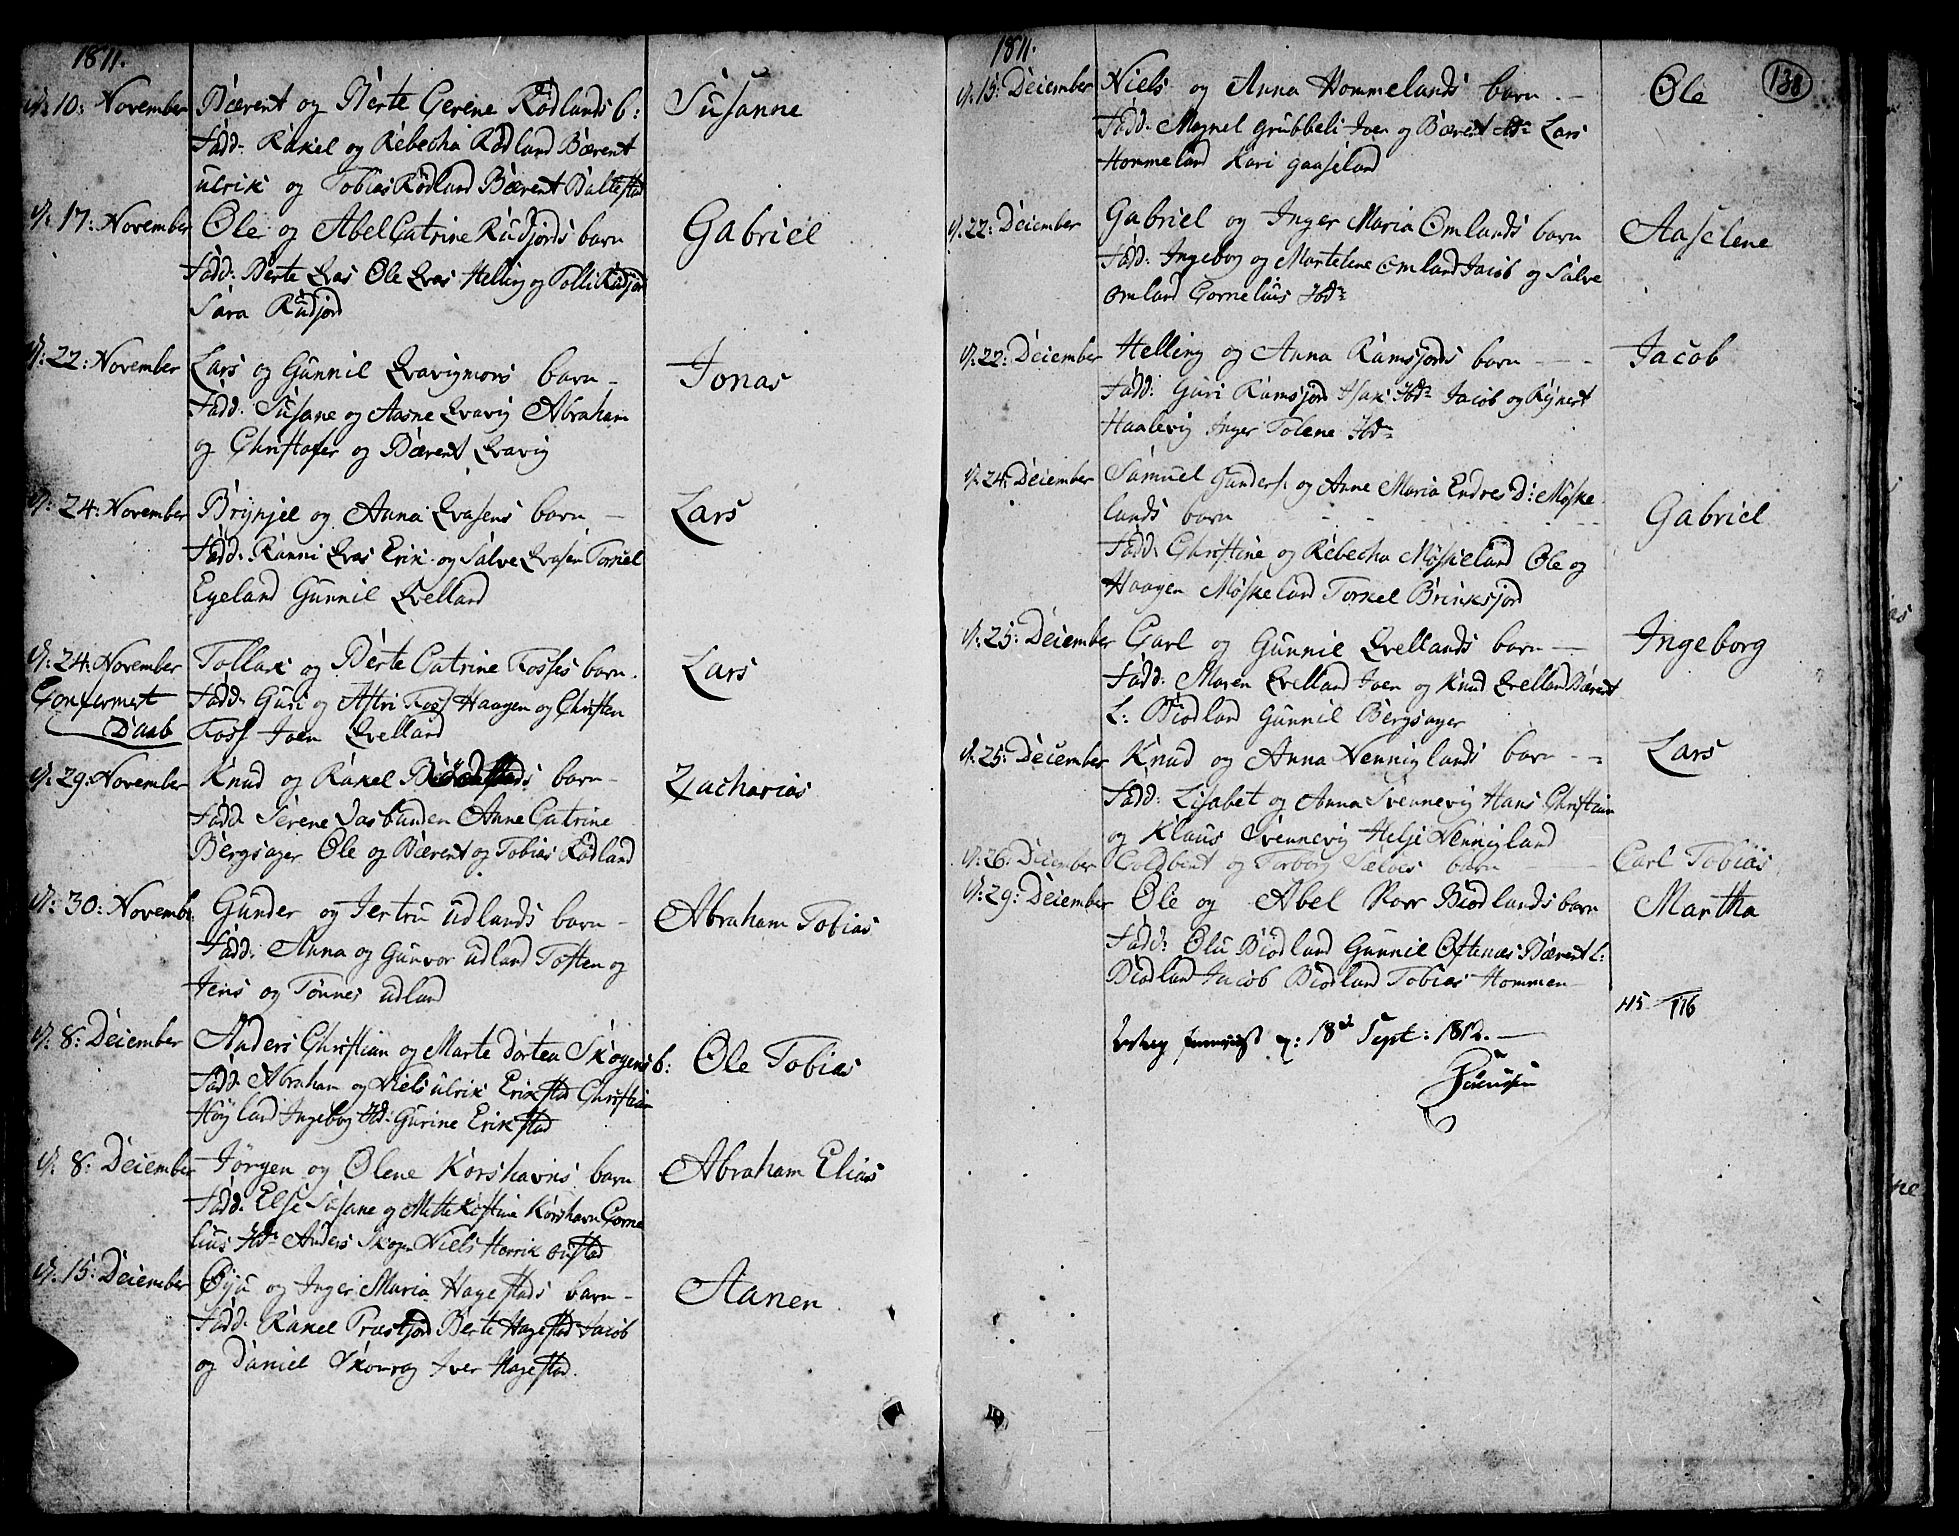 1811.
d: 10: November Bærent og Berte Cerene Rödlands b: Susanne
Fadd: Rakel og Rebecha Rödland Bærent
Ulrik og Tobias Rödland Bærent Baltestad
d: 17: November Ole og Abel Catrine Rudjords barn Gabriel
Fadd: Berte Qvas Ole Qvas Helling og Tolli Rudjor
Sara Rudjord
d: 22: November Lars og Gunnil Qvavigmors barn - Jonas
Fadd: Susane og Aasne Qvavig Abraham
og Christofer og Bærent Qvavig
d: 24: November Brynjel og Anna Qvasens barn - Lars
Fadd: Ranni Qvas Erik og Salve Qvasen Torkiel
Egeland Gunnil Qvelland
d: 24: November Tollak og Berte Catrine Fosses barn. Lars
Confermert Fadd: Guri og Astri Foss Haagen og Christen
Daab Foss Joen Qvelland
d: 29: November Knud og Rakel barn - Zacharias
Fadd: Serene Anne Catrine
Bergsager Ole og Bærent og Tobias Rödland
d: 30: Novembr Gunder og Jertru Udlands barn - Abraham Tobias
Fadd: Anna og Gunvor Udland Tosten og
Jens og Tönnes Udland
d: 8: Deiember Anders Christian og Marte Dortea Skogens b: Ole Tobias
Fadd: Abraham og Niels Ulrik Erikstad Christian
Höyland Ingeborg Ibd: Gurine Erikstad
d: 8: Deiember Jörgen og Olene Korshavns barn Abraham Elias
Fadd: Else Susane og Mette Kistine Korshavn Corne
lius Ibd: Anders Skogen Niels Henrik
d: 15: Deiember Öyu og Inger Maria Hagestads barn - Aanen
Fadd: Rakel Præstjord Berte Hagestad Jacob
og Daniel Skourag Iver Hagestad.
1811.
138
d: 15: Deiember Niels og Anna Hommelands barn. - Ole
Fadd: Magnel Grubbeli Joen og Bærent Ibd: Lars
Hommeland Kari Gaaseland
d: 22: Deiember Gabriel og Inger Maria Omlands barn Aaselene
Fadd: Ingeborg og Martelene Omland Jacob og Salve
Omland Cornelius Ibd:
d: 22: Deiember Helling og Anna Ramsjords barn - - - Jacob
Fadd: Guri Ramsjord Isak Ibd: Jacob og Rynert
Haalevig Inger Tolene Ibd:
d: 24: Deiember Samuel Gunders: og Anne Maria Endres D: Möske
lands barn Gabriel
Fadd: Christine og Rebecha Möskeland Ole og
Haagen Möskeland Torkel Brinksjord
d: 25: Deiember Carl og Gunnil Qvellands barn - Ingeborg
Fadd: Maren Qvelland Joen og Knud Qvelland Bærent
L: Biodland Gunnil Bergsager
d: 25: Deiember Knud og Anna Nenniglands barn - - Lars
Fadd: Lisabet og Anna Svennevig Hans Christian
og Klaus Svennevig Helje Nennigland
d: 26: Deiember og Torborg barn Carl Tobias
d: 29: Deiember Ole og Abel Biodlands barn Martha
Fadd: Olu Biodland Gunnil Oftenæs Bærent L:
Biodland Jacob Biodland Tobias Hommen
115 116
18de Sept: 1812. -